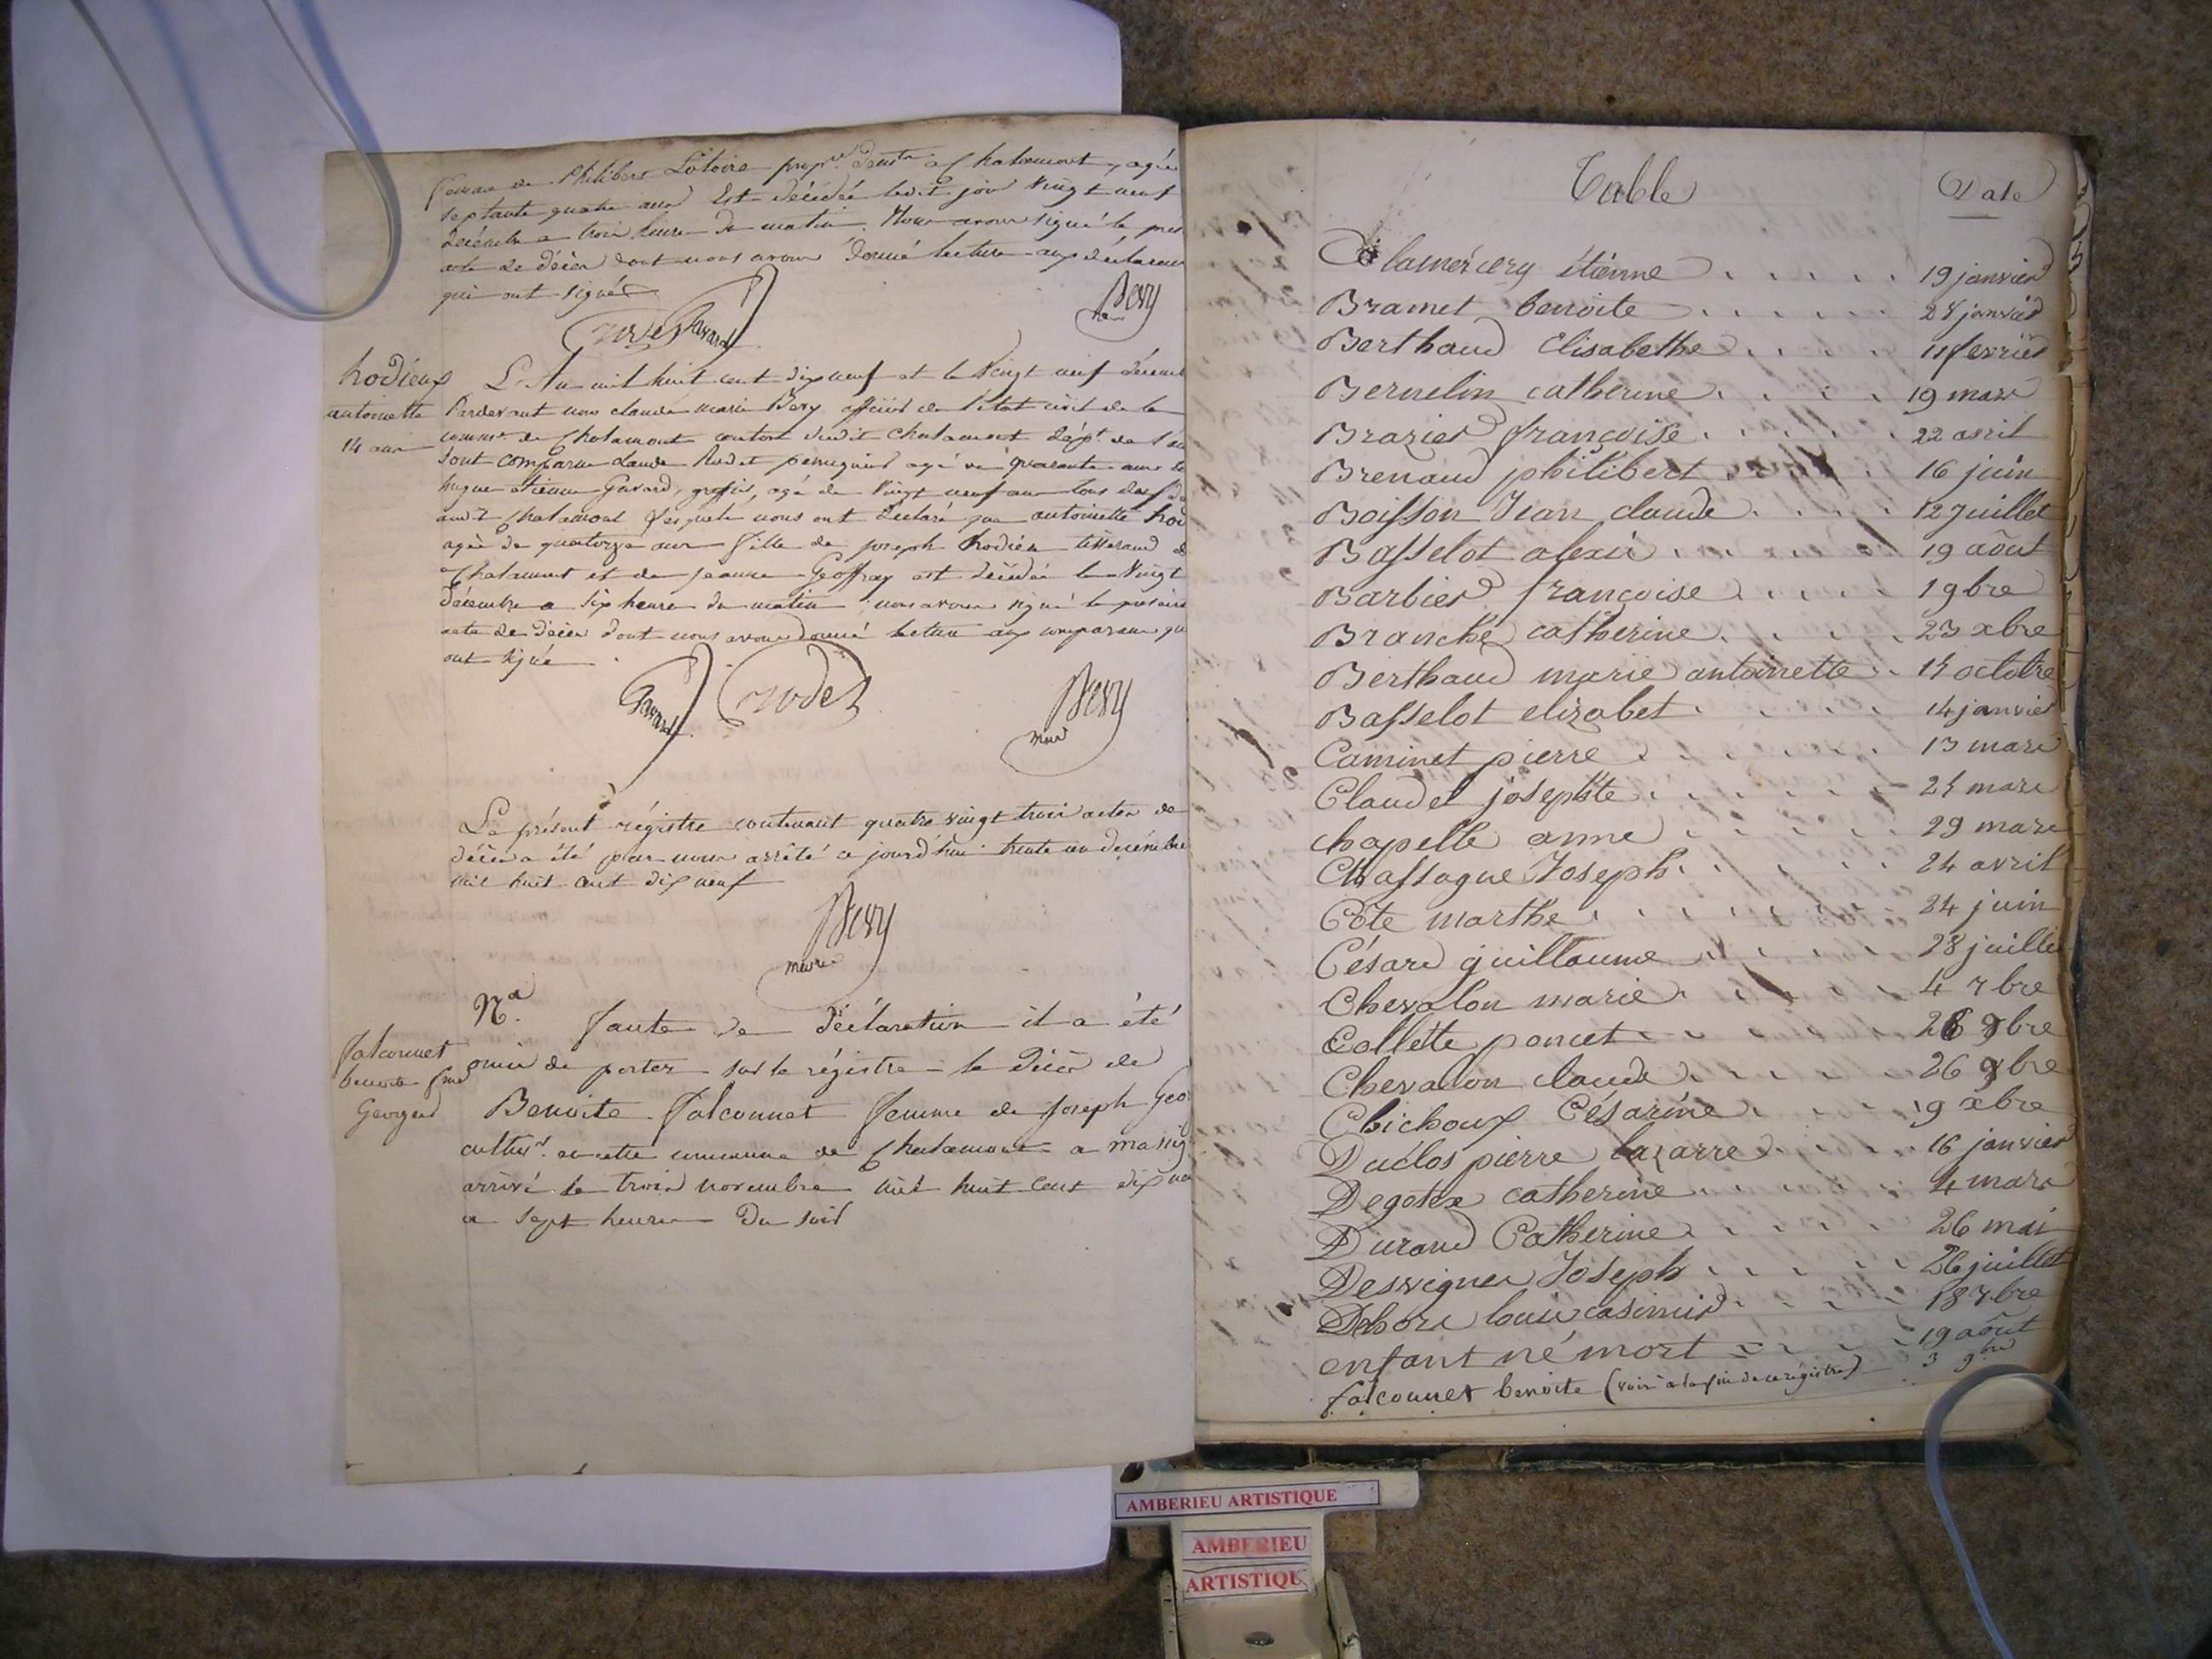 femme de Philibert Litoire prop.re demt a Chalamont, agée
septante quatre ans Est décédée ledit jour Vingt neuf
décembre a trois heures du matin. Nous avons signé le pres
acte de décès dont nous avons donné lecture aux déclarans
qui ont signé
Rodet Gavard Bevy
maire
hodieux
antoinette
14 ans
L'An mil huit cent dix neuf et le Vingt neuf décemb
Pardevant nous claude marie Bevy officier de l'état civil de la
comm.e de Chalamont canton dudit chalamont dép.t de l'ain
sont comparu claude Rodet perruquier agé de quarante ans et
hugue étienne Gavard, greffier, agé de Vingt neuf ans tous deux de
audit Chalamont lesquels nous ont déclaré que antoinette hod
agée de quatorze ans fille de joseph hodieu tisserand a
Chalamont et de jeanne Geoffray est décédée le Vingt
décembre a six heures du matin nous avons signé le présent
acte de décès dont nous avons donné lecture aux comparans qu
ont signé
Gavard Rodet Bevy
maire
Le présent régistre contenant quatre vingt trois actes de
décès a été par nous arrêté ce jourd'hui trente un décembre
mil huit cent dix neuf
Bevy
maire
falconnet
benoite fme
Georges
N.a faute de déclaration il a été
omis de porter sur le régistre le décès de
Benoite falconnet femme de joseph Geo
cultiv.r en cette commune de Chalamont a
arrivé le trois novembre mil huit cent dix ne
a sept heures du soir
Table Date
étienne 19 janvier
Bramet benoite 28 janvier
Berthaud Elisabethe 11 fevrier
Bernelin catherine 19 mars
Brazier françoise 22 avril
Brenaud philibert 16 juin
Boisson Jean claude 12 juillet
Basselot alexis 19 août
Barbier françoise 1 9bre
Branche catherine 23 xbre
Berthaud marie antoinette 15 octobre
Basselot elizabet 14 janvier
Caminet pierre 13 mars
Claudel josephte 25 mars
chapelle anne 29 mars
Chassagne Joseph 24 avril
Côte marthe 24 juin
César guillaume 28 juillet
Chevalon marie 4 7bre
Collette poncet 26 9bre
Chevalon claude 26 9bre
Chichoux Césarine 19 xbre
Duclos pierre lazarre 16 janvier
Degotex catherine 4 mars
Durand Catherine 26 mai
Desvignes Joseph 26 juillet
Dehors louis casimir 18 7bre
enfant né mort 19 août
falconnet benoite (voir a la fin de ce régistre) 3 9bre
AMBERIEU ARTISTIQUE
AMBERIEU
ARTISTIQU